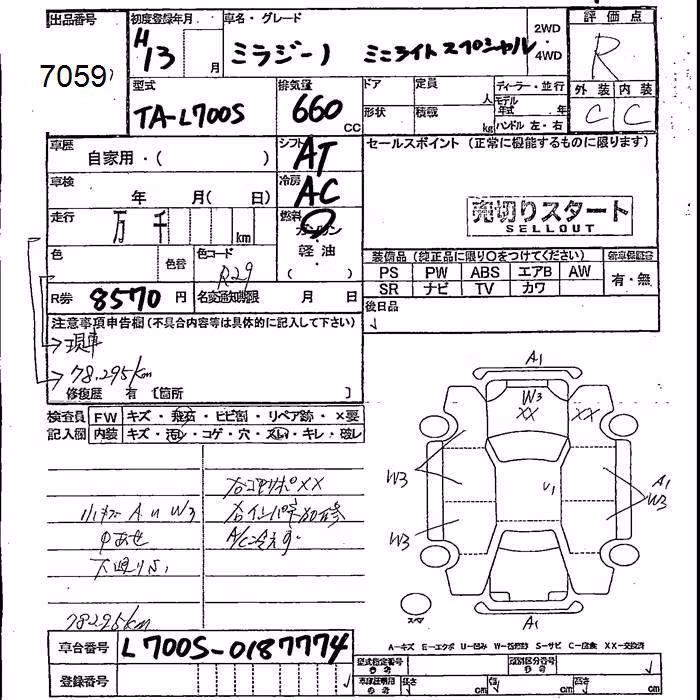 出品番号 初度登録年月 車名・グレード 2WD 4WD 評価点
7059 H13 月 ミラジーノ ミニライトスペシャル R
型式 排気量 ドア 定員 人 ディーラー・並行 外装 内装
TA-L700S 660 cc 形状 積載 kg モデル年式 年 ハンドル 左・右 C C
車歴 シフト セールスポイント (正常に機能するものに限ります)
自家用・( ) AT
車検 冷房
年 月( 日) AC
走行 燃料 売切りスタート
万 千 km ガソリン SELLOUT
色 色替 色コード 軽油 装備品 (純正品に限り○をつけてください)
R29 ( ) PS PW ABS エアB AW 有・無
R券 8570 円 名変通知期限 月 日 SR ナビ TV カワ
注意事項申告欄(不具合内容等は具体的に記入して下さい) 後日品
現車
78.295km
修復歴 有 〔箇所 〕
検査員 FW キズ・飛石・ヒビ割・リペア跡・×要
記入欄 内装 キズ・汚レ・コゲ・穴・スレ・キレ・破レ
A1
W3
XX XX
W3 U1 A1
W3
W3
A1
右コアサポXX
小キズ A U W3 右インパネ加修
A/C冷えず
下廻りサビ
78295km
スペア
A-キズ E-エクボ U-凹み S-サビ C-腐食 XX-交換済
車台番号 L700S-0187774
型式指定番号 類別区分番号
登録番号 長さ cm 幅 cm 高さ cm